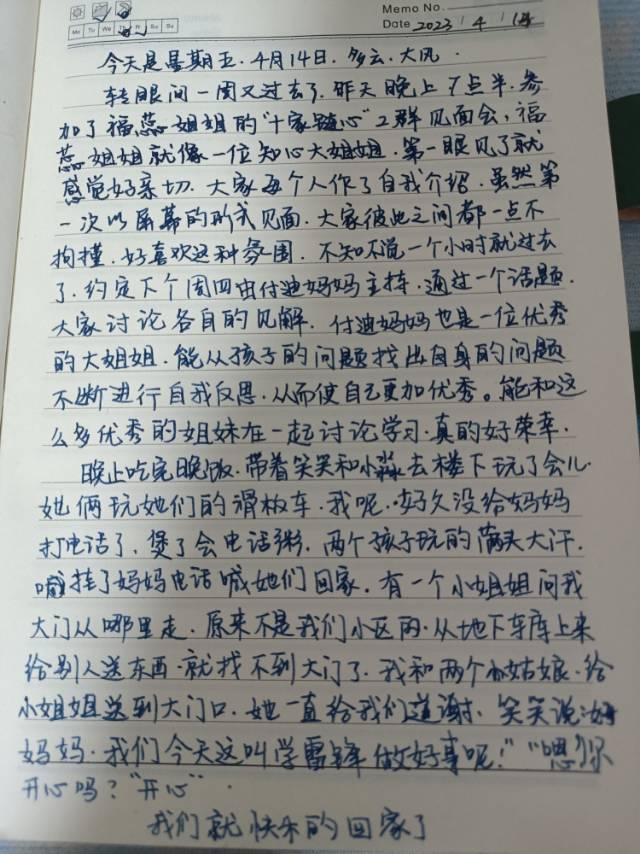 Memo No.
Mo Tu We Th Fr Sa Su
Date 2023 / 4 / 14
今天是星期五.4月14日.多云.大风.
转眼间一周又过去了.昨天晚上7点半.参
加了福蕊姐姐的"十家链心"2群见面会,福
蕊姐姐就像一位知心大姐姐.第一眼见了就
感觉好亲切.大家每个人作了自我介绍.虽然第
一次以屏幕的形式见面.大家彼此之间都一点不
拘谨.好喜欢这种氛围.不知不觉一个小时就过去
了.约定下个周四由付迪妈妈主持.通过一个话题.
大家讨论各自的见解.付迪妈妈也是一位优秀
的大姐姐.能从孩子的问题找出自身的问题
不断进行自我反思.从而使自己更加优秀。能和这
么多优秀的姐妹在一起讨论学习.真的好荣幸.
晚上吃完晚饭.带着笑笑和小淼去楼下玩了会儿.
她俩玩她们的滑板车.我呢.好久没给妈妈
打电话了.煲了会电话粥.两个孩子玩的满头大汗.
挂了妈妈电话喊她们回家.有一个小姐姐问我
大门从哪里走.原来不是我们小区的.从地下车库上来
给别人送东西.就找不到大门了.我和两个小姑娘.给
小姐姐送到大门口.她一直给我们道谢.笑笑说:
妈妈.我们今天这叫学雷锋做好事呢!""嗯你
开心吗?"开心".
我们就快乐的回家了